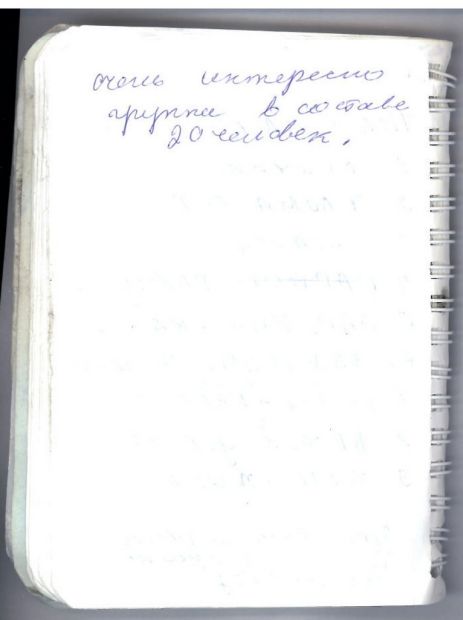 очень интересно
группа в составе
20 человек.